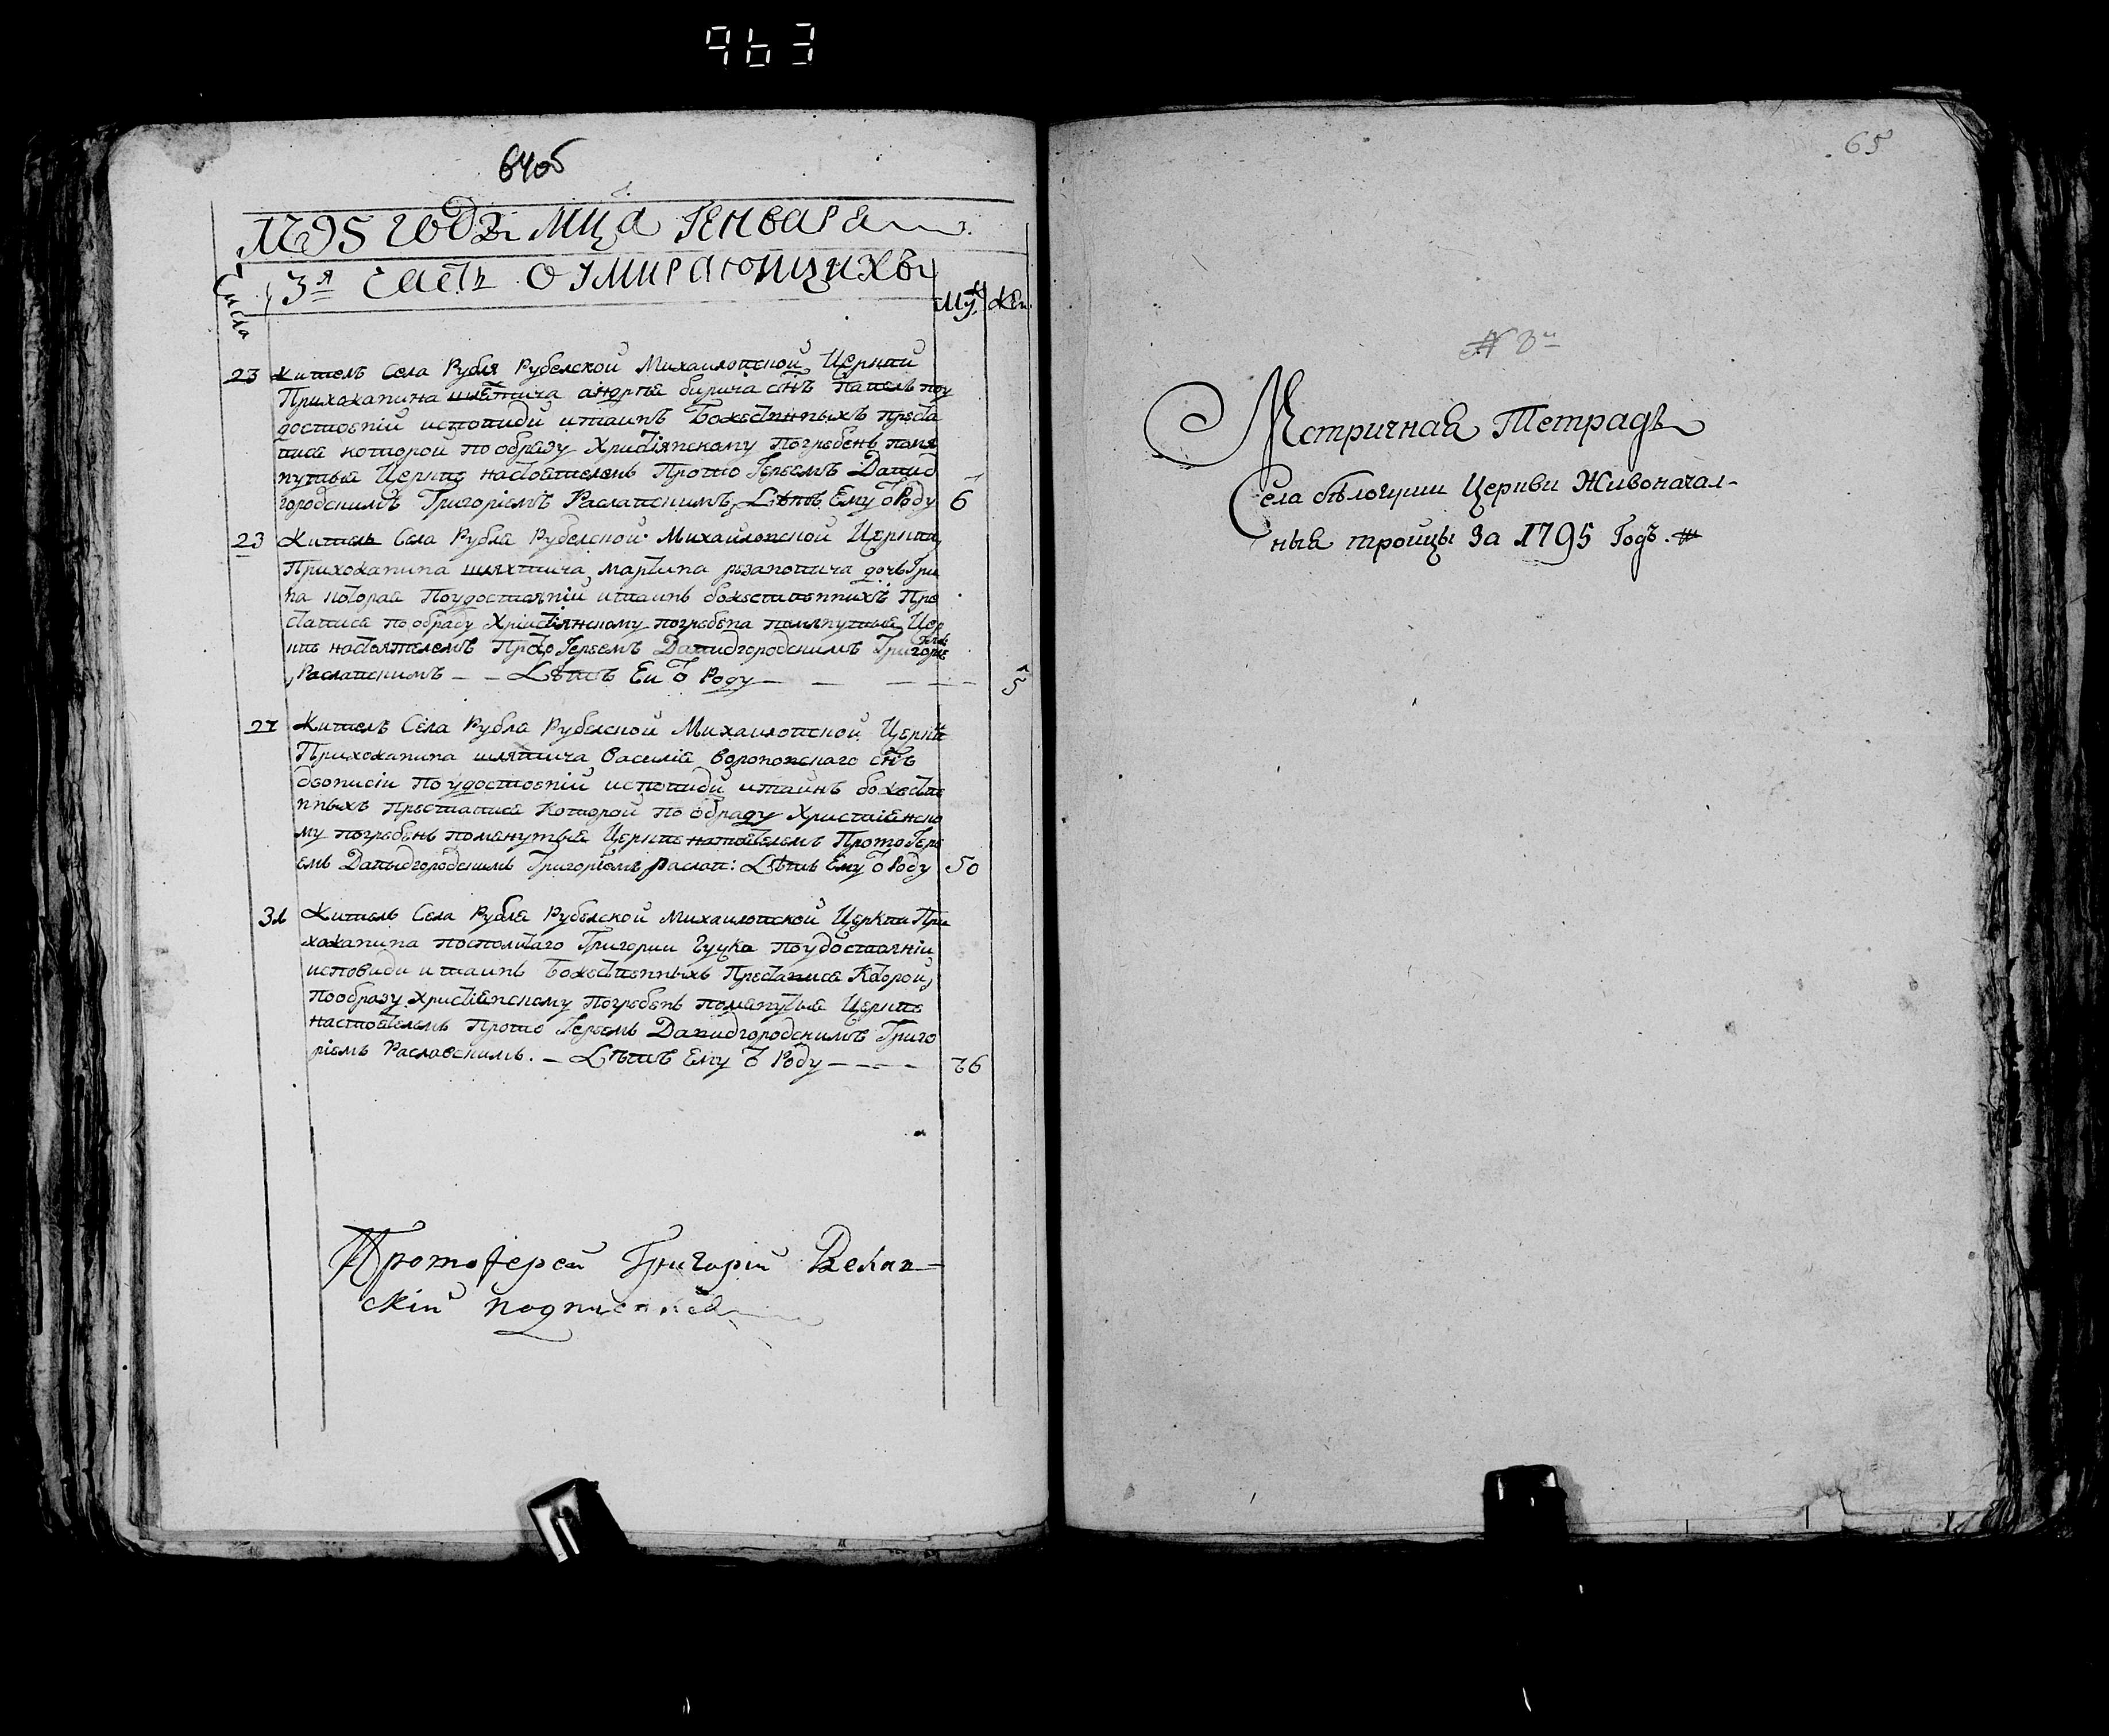 963
64об
1795 годъ мца Генваря
3я часть о умирающихъ
Числа
Муж
Жен
23 Житель Села Рубля Рубелской Михаиловской Церкви
Прихожанина шляхтича андрея бирича снъ Павелъ поу
достоеніи исповиди итаинъ Божественныхъ преста
вися которой по образу Христіянскому погребенъ помя
нутыя Церкве настоятелемъ Прото Іереемъ Давид
городскимъ Григоріемъ Раславскимъ, Лѣтъ Ему ѿ Роду 6
23 Житель Села Рубля Рубелской Михаиловской Церкви
Прихожанина шляхтича мартина рѣзановича дочь
на которая Поудостояніи итаинъ божественнихъ Пре
ставися по образу Хрістіянскому погребена помянутыя Цер
кве настоятелемъ Прото Іереемъ Давидгородскимъ Григоріе
Раславскимъ – – Лѣтъ Еи ѿ Роду – – – – 5
27 Житель Села Рубля Рубелской Михаиловской Церкви
Прихожанина шляхтича Василія вороновскаго снъ
деонисіи Поудостоеніи исповиди итаинъ божестве
нныхъ преставися Которой по образу Христіянско
му погребенъ поменутыя Церкве настоятелемъ ПротоІере
емъ Давыдгородскимъ Григоріемъ Раслав: Лѣтъ Ему ѿ Роду 50
31 Житель Села Рубля Рубелской Михаиловской Церкви При
хожанина посполитаго Григории Гуцка поудостояніи
исповиди итаинъ Божественныхъ Преставися Которой
Пообразу христіянскому погребенъ поменутыя Церкве
настоятелемъ Прото Іереемъ Давидгородскимъ Григо
ріемъ Раславскимъ. – Лѣтъ Ему ѿ Роду – – – – 76
Протоіерей Григорій
скій подписался
65
Метричная Тетрадь
Села бѣлогуши Церкви Живоначал-
ныя тройцы За 1795 Годъ.